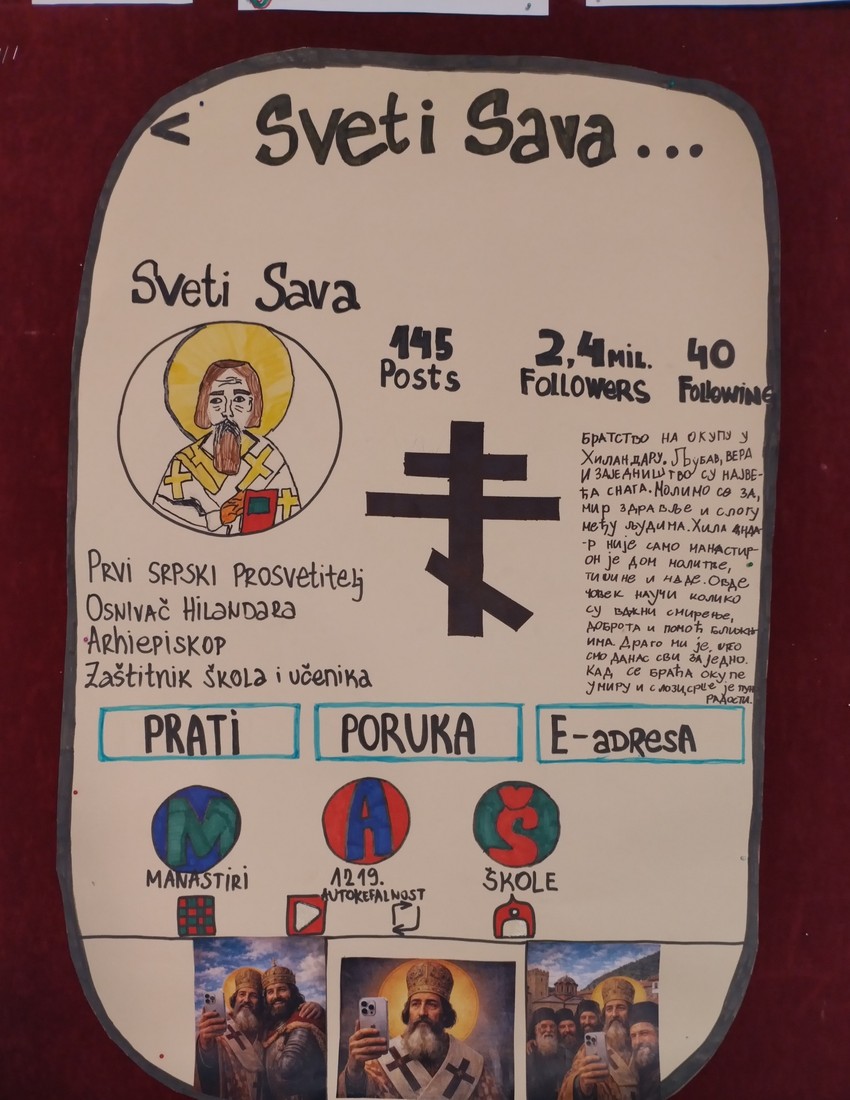 < Sveti Sava...
Sveti Sava
145
Posts
2,4 MIL.
FOLLOWERS
40
Following
БРАТСТВО НА ОКУПУ У
ХИЛАНДАРУ. ЉУБАВ, ВЕРА
И ЗАЈЕДНИШТВО СУ НАЈВЕ-
ЋА СНАГА. МОЛИМО СЕ ЗА,
МИР ЗДРАВЉЕ И СЛОГУ
МЕЂУ ЉУДИМА. ХИЛАНДА-
-Р НИЈЕ САМО МАНАСТИР
ОН ЈЕ ДОМ МОЛИТВЕ,
ТИШИНЕ И НАДЕ. ОВДЕ
ЧОВЕК НАУЧИ КОЛИКО
СУ ВАЖНИ СМИРЕЊЕ,
ДОБРОТА И ПОМОЋ БЛИЖЊ-
ИМА. ДРАГО МИ ЈЕ, ШТО
СМО ДАНАС СВИ ЗАЈЕДНО.
КАД СЕ БРАЋА ОКУПЕ
У МИРУ И СЛОЗИ, СРЦЕ ЈЕ ПУНО
РАДОСТИ.
PRVI SRPSKI PROSVETITELJ
OSNIVAČ HILANDARA
ARHIEPISKOP
ZAŠTITNIK ŠKOLA i UČENIKA
PRATI
PORUKA
E-ADRESA
M
A
Š
MANASTIRI
1219.
AUTOKEFALNOST
ŠKOLE